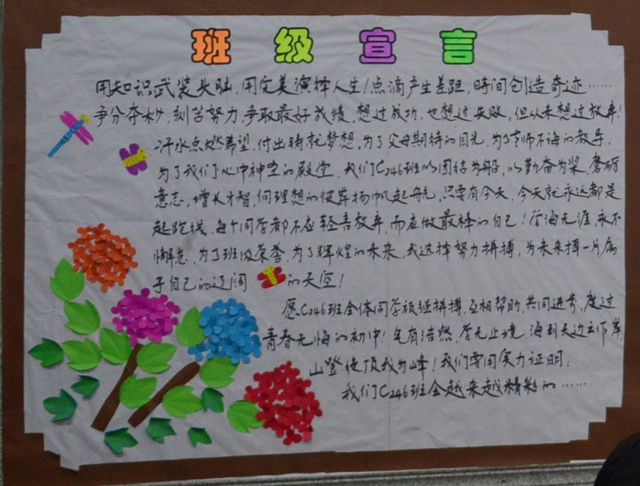 班级宣言
用知识武装头脑,用完美演绎人生!点滴产生差距,時间创造奇迹……
争分夺秒,刻苦努力,争取最好成绩,想过成功,也想过失败,但从未想过放弃!
汗水点燃希望,付出铸就梦想,为了父母期待的目光,为了师不悔的教导,
为了我们心中神圣的殿堂,我们C246班以团结为船,以勤奋为桨,磨砺
意志,增长才智,向理想的彼岸扬帆起航,只要有今天,今天就永远都是
起跑线,每个同学都不应轻言放弃,而应做最棒的自己!学海无涯,永不
懈怠,为了班级荣誉,为了辉煌的未来,我选择努力拼搏,为未来搏一片属
于自己的辽阔的天空!
愿C246班全体同学顽强拼搏,互相帮助,共同进步,度过
青春无悔的初中!笔有浩然,学无止境,海到天边立作岸,
山登绝顶我为峰!我们要用实力证明:
我们C246班会越来越精彩的……